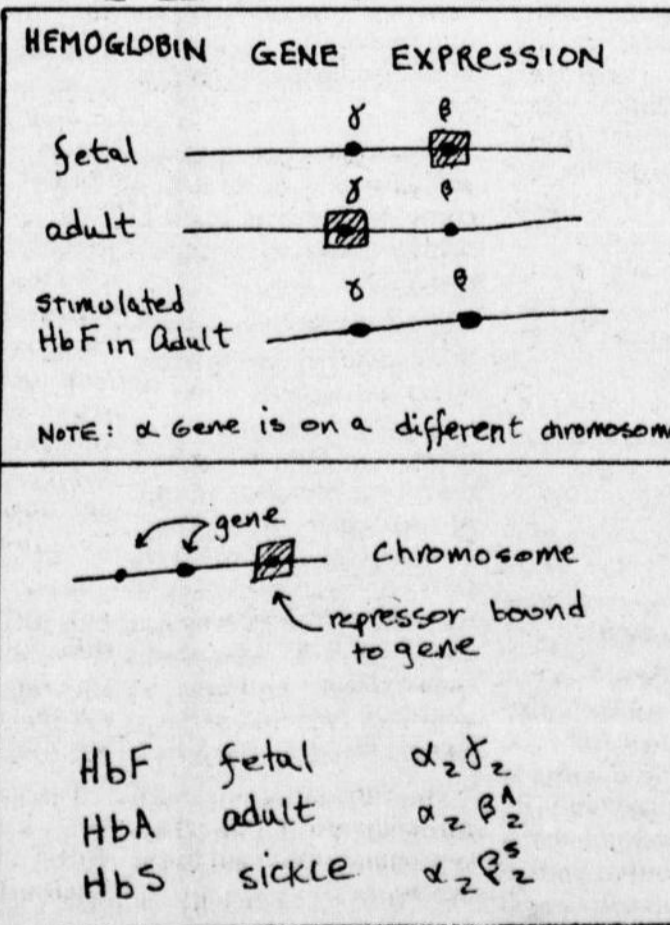 HEMOGLOBIN GENE EXPRESSION
γ β
fetal
γ β
adult
γ β
stimulated
HbF in Adult
NOTE: α Gene is on a different chromosom
gene
Chromosome
repressor bound
to gene
HbF fetal α₂γ₂
HbA adult α₂β₂ᴬ
HbS sickle α₂β₂ˢ